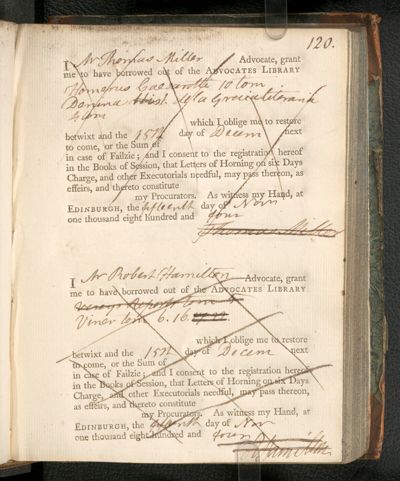 120.
I Mr Thomas Miller Advocate, grant
me to have borrowed out of the ADVOCATES LIBRARY
Homerus Cesarotti 10 tom
Denina Hist. della Grecia
4 tom
which I oblige me to restore
betwixt and the 15th day of Decem next
to come, or the Sum of
in case of Failzie; and I consent to the registration hereof
in the Books of Session, that Letters of Horning on six Days
Charge, and other Executorials needful, may pass thereon, as
effeirs, and thereto constitute
my Procurators. As witness my Hand, at
EDINBURGH, the fifteenth day of Novr
one thousand eight hundred and four
Thomas Miller
I Mr Robert Hamilton Advocate, grant
me to have borrowed out of the ADVOCATES LIBRARY
Viner tom 6. 16
which I oblige me to restore
betwixt and the 15th day of Decem next
to come, or the Sum of
in case of Failzie; and I consent to the registration hereof
in the Books of Session, that Letters of Horning on six Days
Charge, and other Executorials needful, may pass thereon,
as effeirs, and thereto constitute
my Procurators. As witness my Hand, at
EDINBURGH, the day of Nov
one thousand eight hundred and four